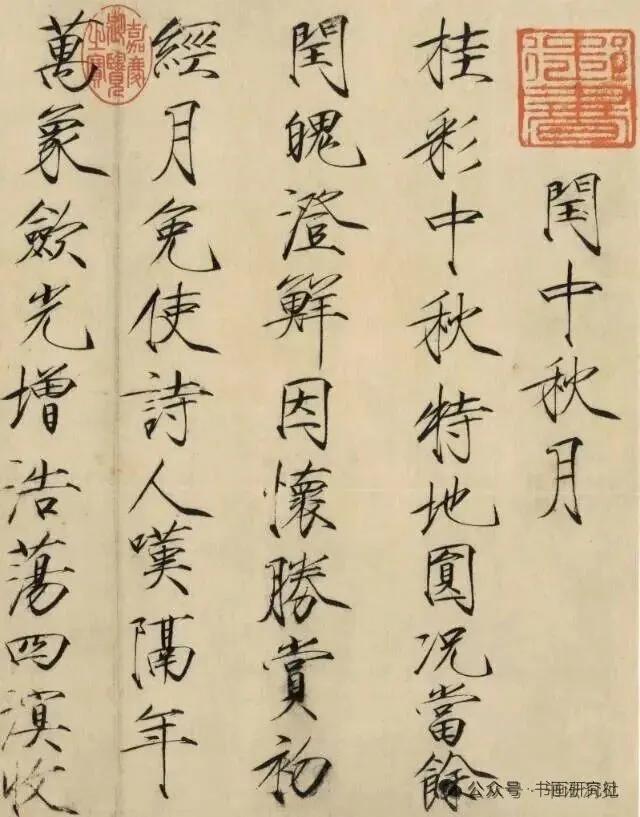 閏中秋月
桂彩中秋特地圓況當餘
閏魄澄鮮因懷勝賞初
經月免使詩人嘆隔年
萬象歛光增浩蕩四溟收
嘉慶御覽之寶
御書
公众号·书画研究社